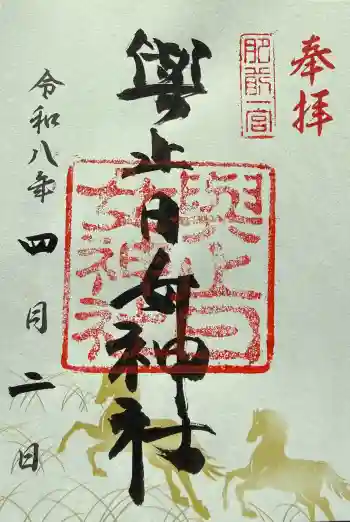 奉拝
肥前一宮
與止日女神社
與止日
女神社
令和八年
四月二日